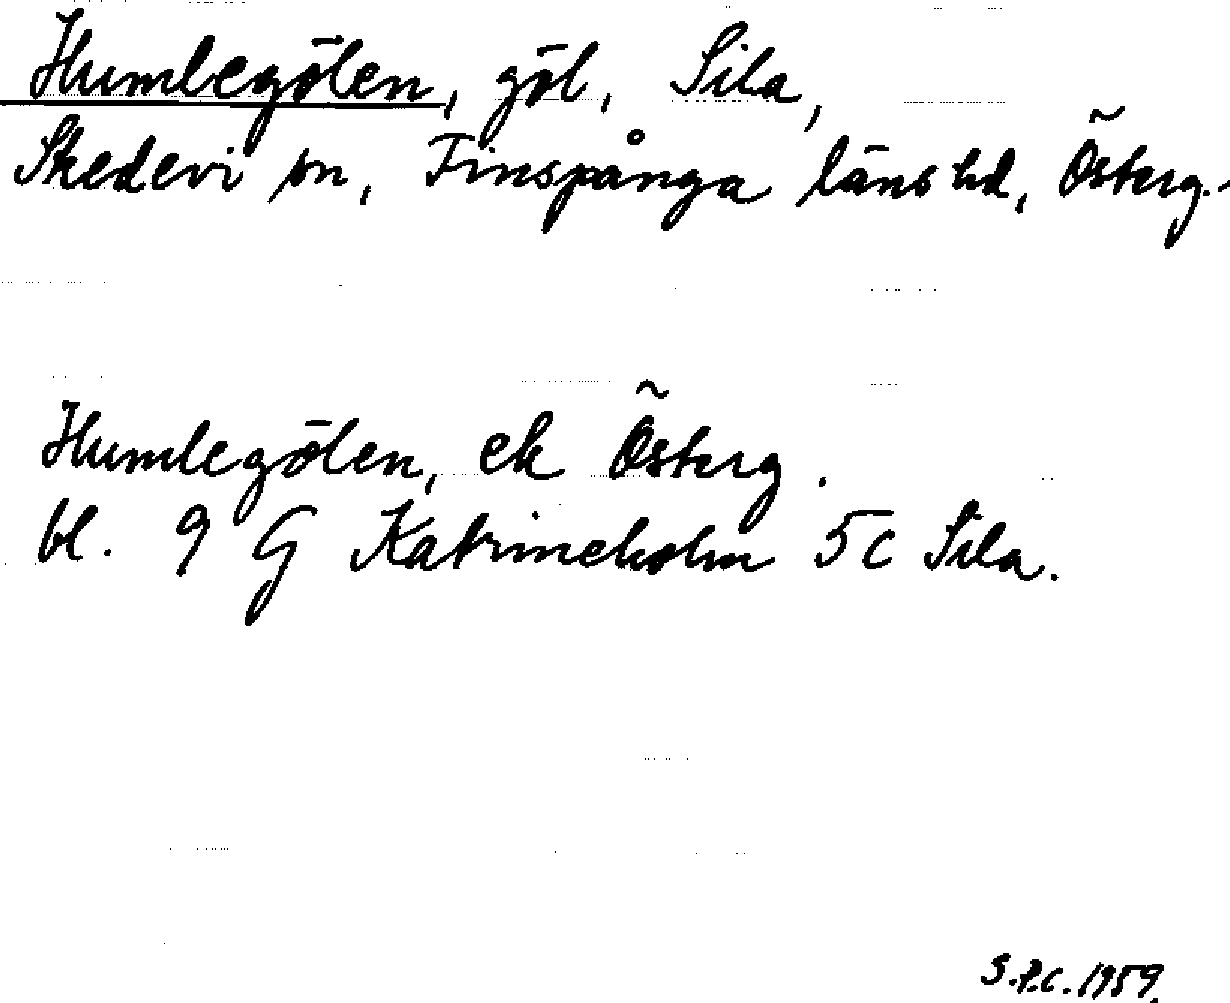 Humlegölen, göl, Sila,
Skedevi sn, Finspånga läns hd, Österg.
Humlegölen, ek Österg.
bl. 9 G Katrineholm 5c Sila.
S.P.C. 1959.